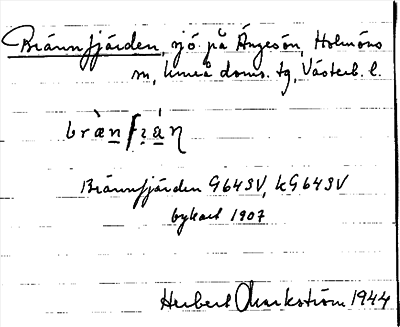 Brännfjärden, sjö på Ängesön, Holmöns
sn, Umeå doms. tg, Västerb. l.
bræ̀nfjǽṇ
Brännfjärden G643V, kG643V
bykart 1907
Herbert Markström 1944